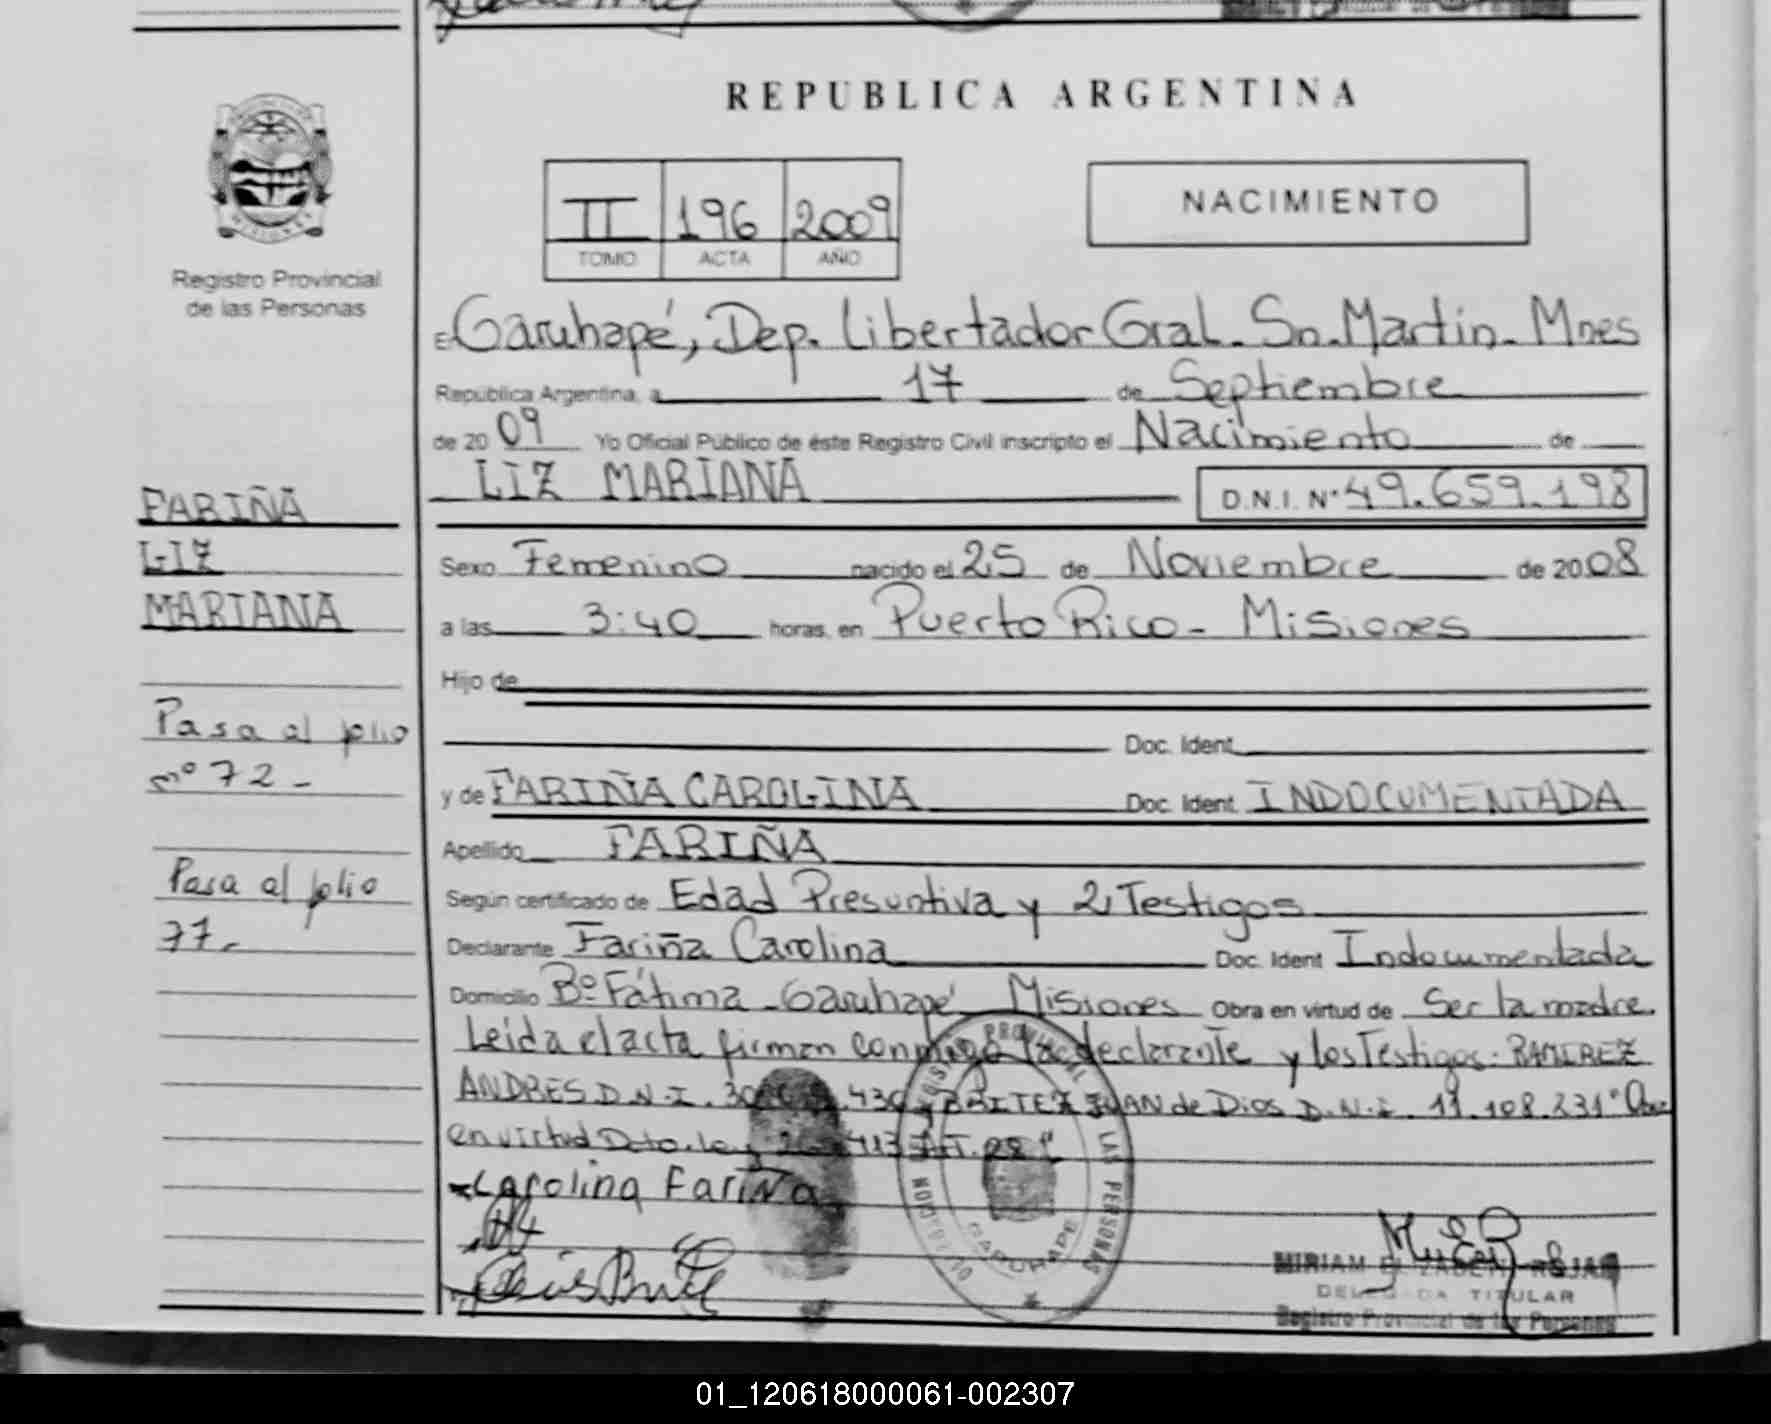 REPUBLICA ARGENTINA
II 196 2009
TOMO ACTA AÑO
NACIMIENTO
Registro Provincial
de las Personas
FARIÑA
LIZ
MARIANA
Pasa al folio
nº 72 -
Pasa al folio
77.-
E Garuhapé, Dep. Libertador Gral. Sn. Martin - Mnes
República Argentina, a 17 de Septiembre
de 20 09 Yo Oficial Público de éste Registro Civil inscripto el Nacimiento de
LIZ MARIANA D.N.I. Nº 49.659.198
Sexo Femenino nacido el 25 de Noviembre de 2008
a las 3:40 horas, en Puerto Rico - Misiones
Hijo de
Doc. Ident.
y de FARIÑA CAROLINA Doc. Ident. INDOCUMENTADA
Apellido FARIÑA
Según certificado de Edad Presuntiva y 2 Testigos
Declarante Fariña Carolina Doc. Ident Indocumentada
Domicilio Bº Fátima - Garuhapé - Misiones Obra en virtud de Ser la madre.
Leida el acta firman conmigo la declarante y los Testigos: RAMIREZ
ANDRES D.N.I. BRITEZ JUAN de Dios D.N.I. 11.108.231"
en virtud Dcto. Ley
Carolina Fariña
REGISTRO PROVINCIAL DE LAS PERSONAS
GARUHAPE
MIRIAM ROJAS
DELEGADA TITULAR
Registro Provincial de las Personas
01_120618000061-002307